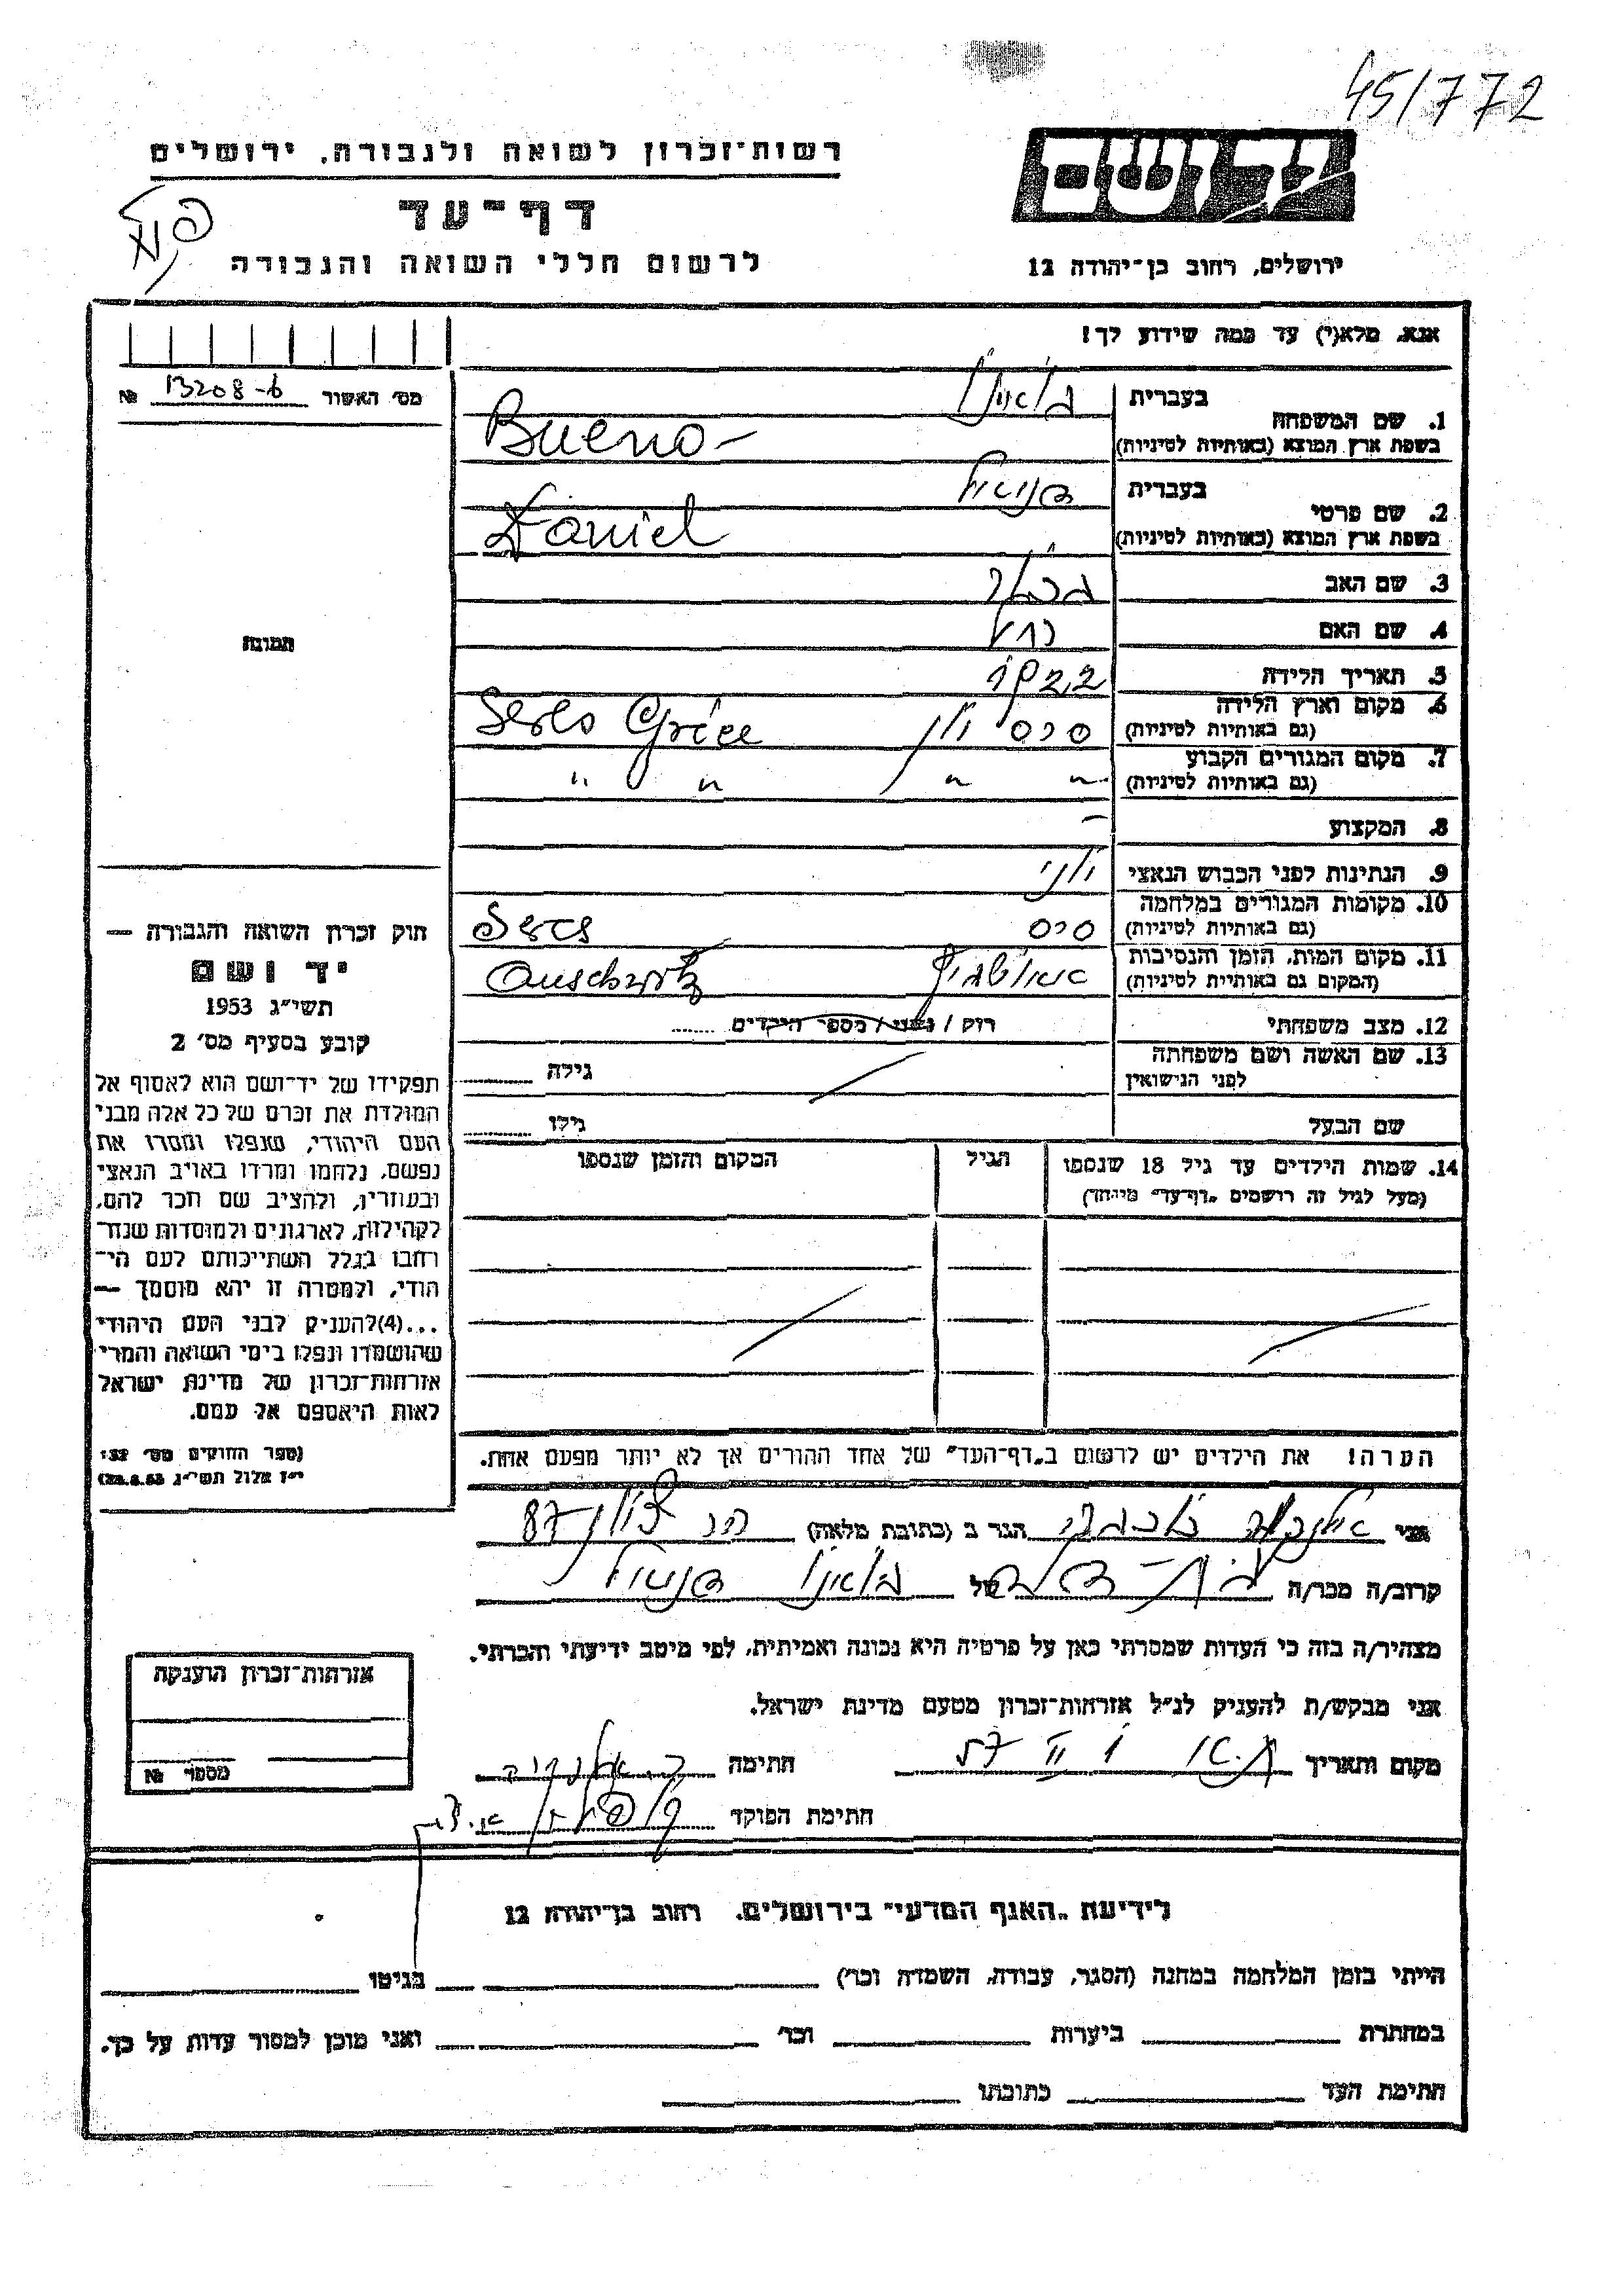 45/772
רשות-זכרון לשואה ולגבורה, ירושלים
דף-עד
לרשום חללי השואה והגבורה
יד ושם
ירושלים, רחוב בן-יהודה 12
אנא, מלא(י) עד כמה שידוע לך!
מס׳ האשור 13208-6 №
1. שם המשפחה
בעברית בואנו
בשפת ארץ המוצא (באותיות לטיניות) Bueno-
2. שם פרטי
בעברית דניאל
בשפת ארץ המוצא (באותיות לטיניות) Daniel
3. שם האב
4. שם האם
5. תאריך הלידה
6. מקום וארץ הלידה
(גם באותיות לטיניות) סרס יון Seres Grèce
7. מקום המגורים הקבוע
(גם באותיות לטיניות) " " " "
8. המקצוע –
9. הנתינות לפני הכבוש הנאצי יוני
10. מקומות המגורים במלחמה
(גם באותיות לטיניות) סרס Seres
11. מקום המות, הזמן והנסיבות
(המקום גם באותיות לטיניות) אושוויץ Auschwitz
12. מצב משפחתי רוק / נשוי / מספר הילדים
13. שם האשה ושם משפחתה
לפני הנישואין גילה
שם הבעל גילו
14. שמות הילדים עד גיל 18 שנספו
(מעל לגיל זה רושמים „דף-עד" מיוחד)
הגיל
המקום והזמן שנספו
הערה! את הילדים יש לרשום ב„דף-העד" של אחד ההורים אך לא יותר מפעם אחת.
תמונה
חוק זכרון השואה והגבורה —
יד ושם
תשי"ג 1953
קובע בסעיף מס׳ 2
תפקידו של יד-ושם הוא לאסוף אל
המולדת את זכרם של כל אלה מבני
העם היהודי, שנפלו ומסרו את
נפשם, נלחמו ומרדו באויב הנאצי
ובעוזריו, ולהציב שם וזכר להם,
לקהילות, לארגונים ולמוסדות שנח-
רחבו בגלל השתייכותם לעם הי-
הודי, ולמטרה זו יהא מוסמך —
...(4)להעניק לבני העם היהודי
שהושמדו ונפלו בימי השואה והמרי
אזרחות-זכרון של מדינת ישראל
לאות היאספם אל עמם.
(ספר החוקים מס׳ 132
י"ז אלול תשי"ג 28.8.53)
אני הגר ב (כתובת מלאה) הר ציון 87
קרוב/ה מכר/ה בת-דודה של בואנו דניאל
מצהיר/ה בזה כי העדות שמסרתי כאן על פרטיה היא נכונה ואמיתית, לפי מיטב ידיעתי והכרתי.
אני מבקש/ת להעניק לנ"ל אזרחות-זכרון מטעם מדינת ישראל.
מקום ותאריך חתימה
חתימת הפוקד
אזרחות-זכרון הוענקה
מספר №
לידיעת „האגף המדעי" בירושלים, רחוב בן-יהודה 12
הייתי בזמן המלחמה במחנה (הסגר, עבודה, השמדה וכו׳) בגיטו
במחתרת ביערות וכו׳ ואני מוכן למסור עדות על כך.
חתימת העד כתובתו